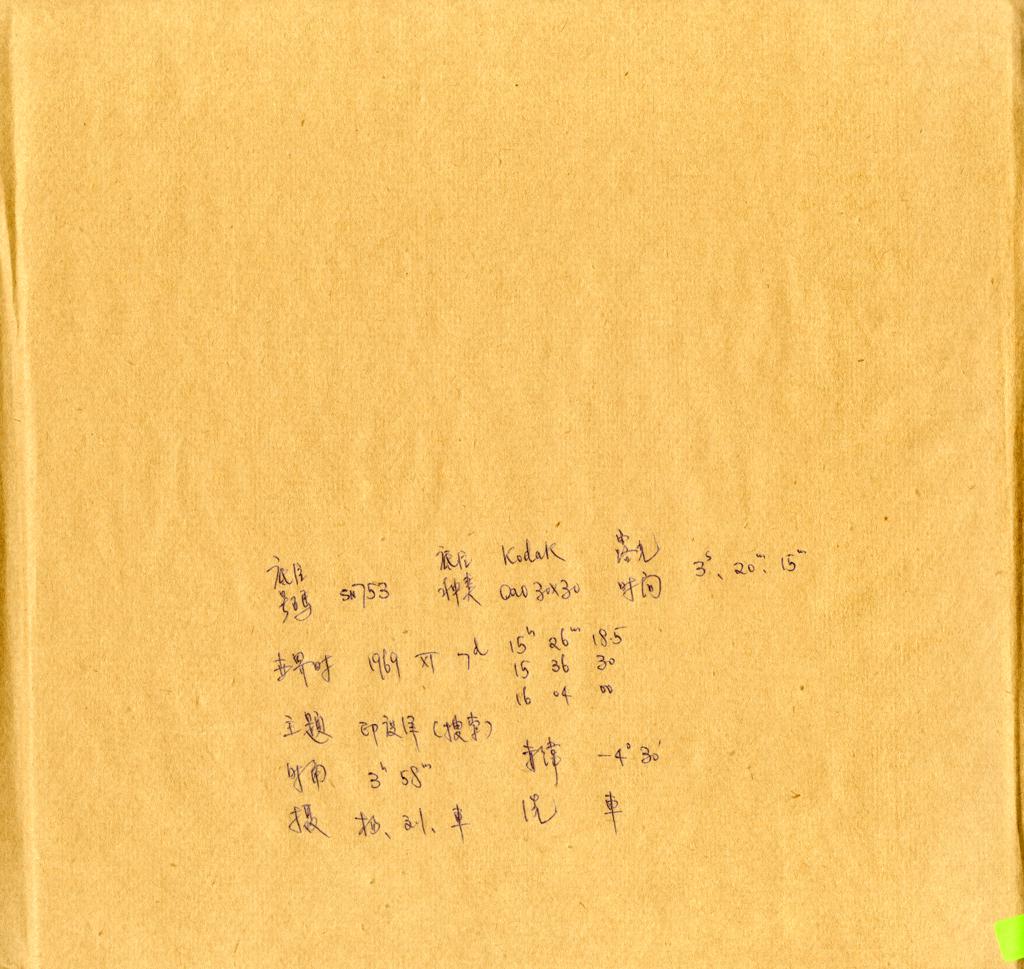 底片号码 SN753 底片种类 Kodak OaO 30x30 露光时间 3ˢ、20ᵐ、15ᵐ
世界时 1969 XI 7ᵈ 15ʰ 26ᵐ 18.5
15 36 30
16 04 00
主题 (搜索)
时角 3ʰ 58ᵐ 赤纬 -4° 30′
摄 杨、刘、車 洗 車